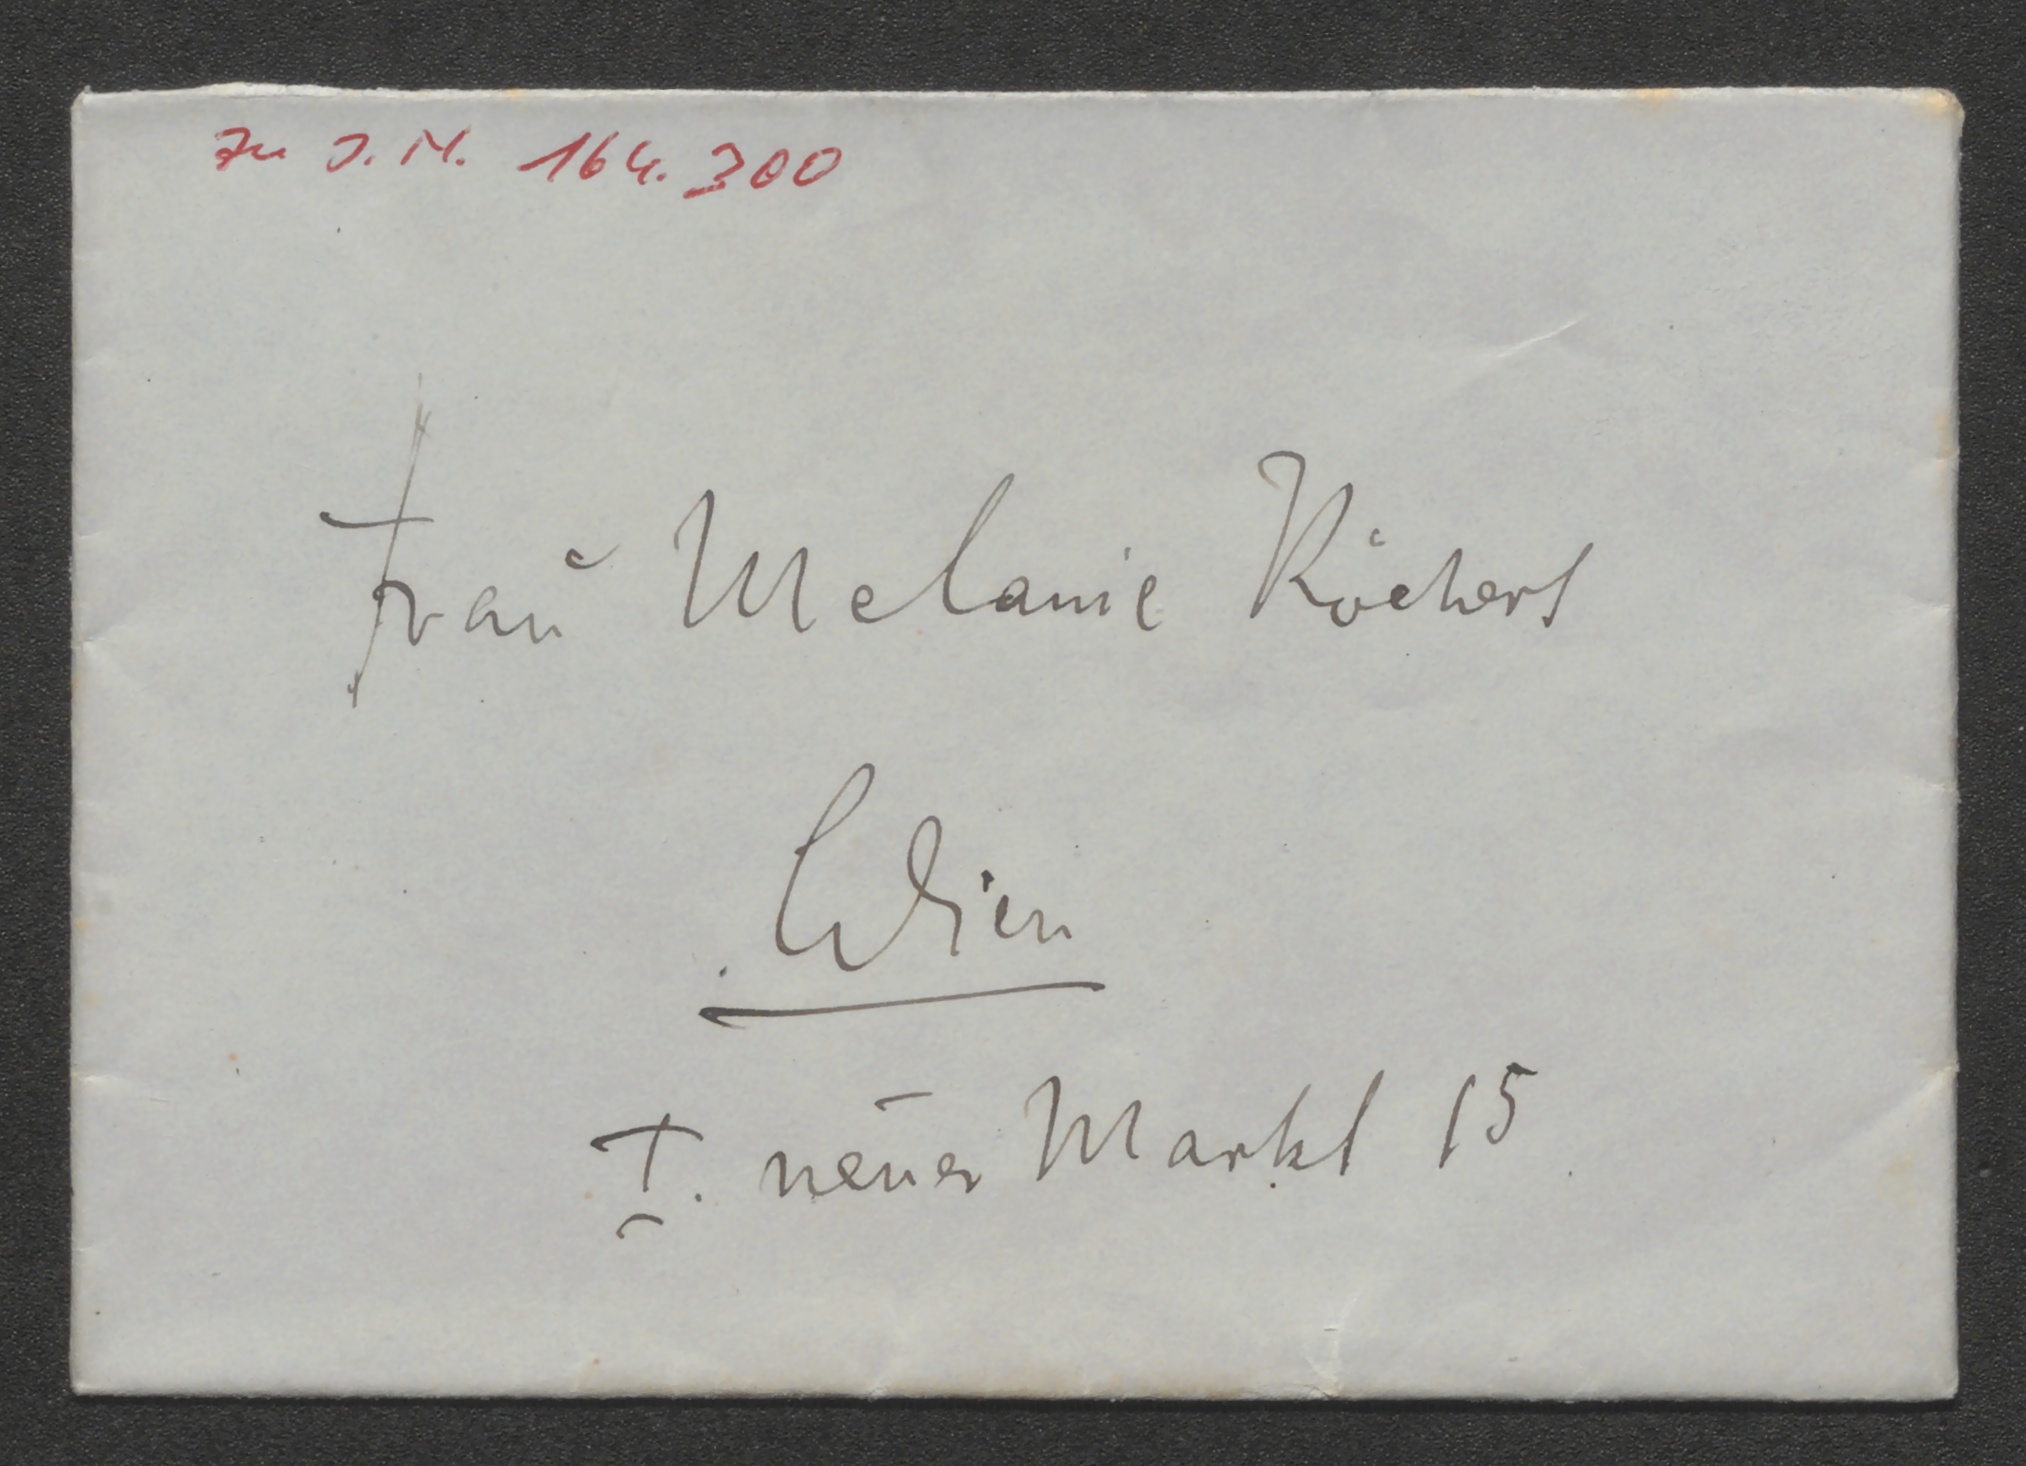 zu I.N. 164.300
Frau Melanie Köchert
Wien
I. neuer Markt 15